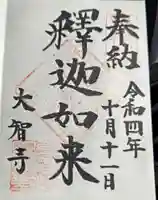 奉納
令和四年
十月十一日
釋迦如来
大智寺